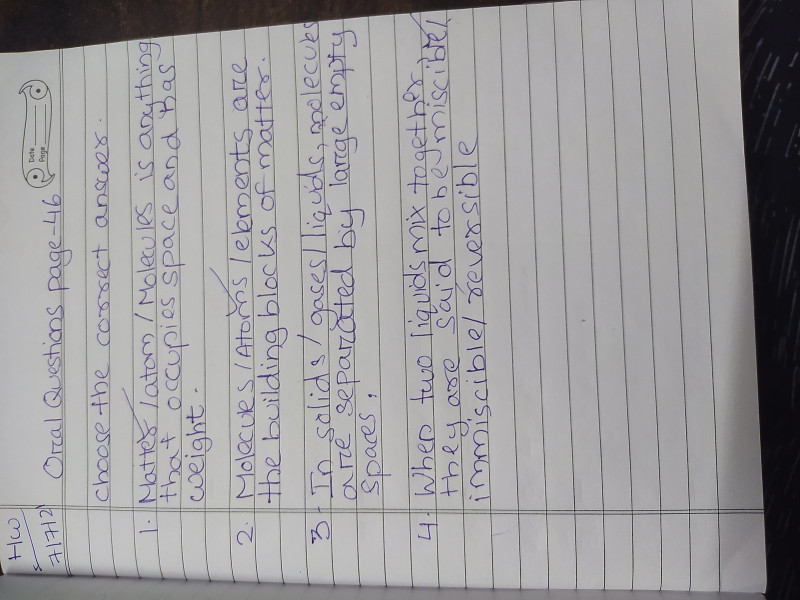 HW
7/7/21
Date
Page
Oral Questions page-46
choose the correct answer.
1. Matter/atom/Molecules is anything
that occupies space and has
weight.
2. Molecules/Atoms/elements are
the building blocks of matter.
3. In solids/gases/liquids, molecules
are separated by large empty
spaces.
4. When two liquids mix together,
they are said to be miscible/
immiscible/reversible